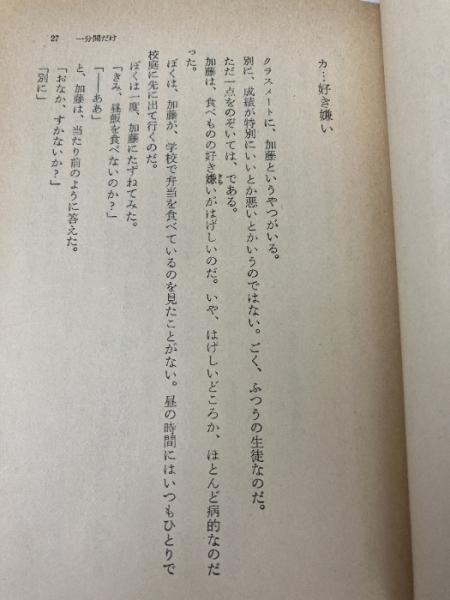 27　一分間だけ
カ…好き嫌い
クラスメートに、加藤というやつがいる。
別に、成績が特別にいいとか悪いとかいうのではない。ごく、ふつうの生徒なのだ。
ただ一点をのぞいては、である。
加藤は、食べものの好き嫌いがはげしいのだ。いや、はげしいどころか、ほとんど病的なのだ
った。
ぼくは、加藤が、学校で弁当を食べているのを見たことがない。昼の時間にはいつもひとりで
校庭に先に出て行くのだ。
ぼくは一度、加藤にたずねてみた。
「きみ、昼飯を食べないのか？」
「――ああ」
と、加藤は、当たり前のように答えた。
「おなか、すかないか？」
「別に」